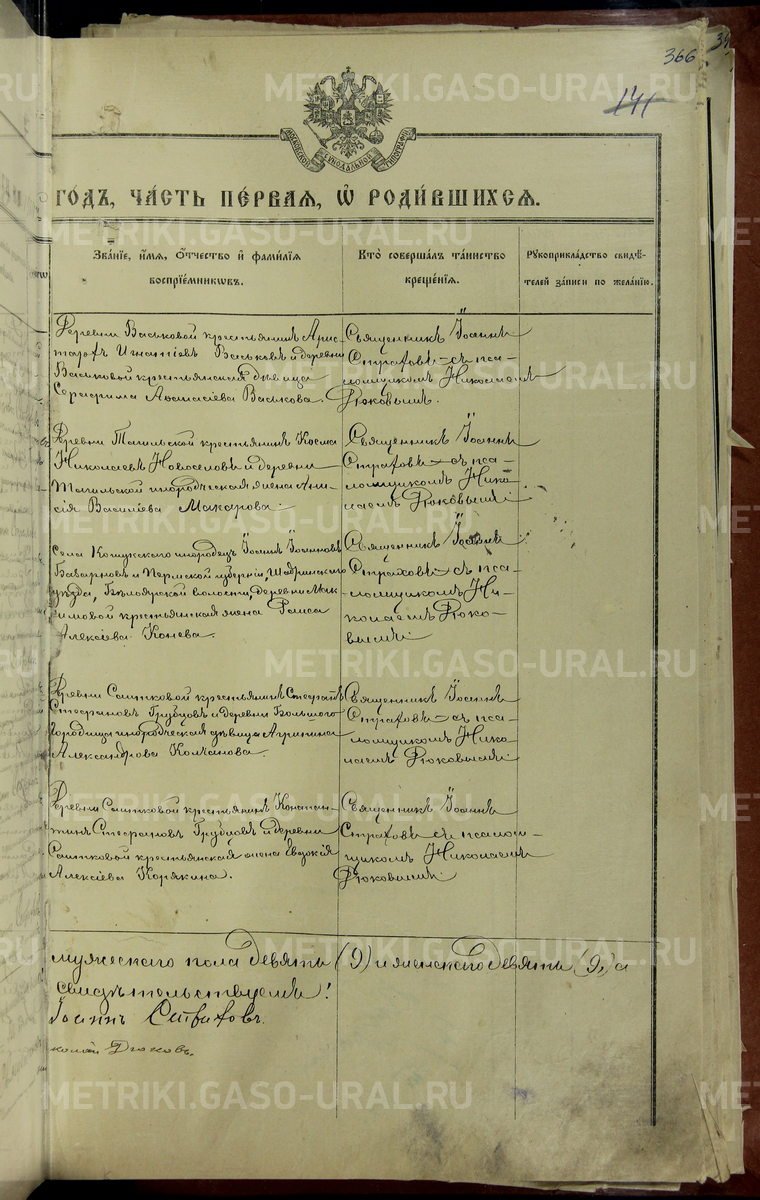 366
141
МОСКОВСКОЙ СУНОДАЛЬНОЙ ТИПОГРАФІИ
ГО́ДЪ, ЧА́СТЬ ПЕ́РВАѦ, Ѡ҆ РОДИ́ВШИХСѦ.
Зва́нїе, и҆́мѧ, ѻ҆́тчество и҆ фами́лїѧ воспрїе́мникѡвъ.
Кто̀ соверша́лъ та́инство креще́нїѧ.
Рꙋкоприкла́дство свидѣ́телей за́писи по жела́нїю.
Деревни Васьковой крестьянинъ Арис-
тархъ Игнатіевъ Васьковъ и деревни
Васьковой крестьянская дѣвица
Серафима Аѳанасіева Васькова.
Священникъ Іоаннъ
Страховъ съ пса-
ломщикомъ Николаемъ
Дюковымъ.
Деревни Тагильской крестьянинъ Косма
Николаевъ Новоселовъ и деревни
Тагильской инородческая жена Ани-
сія Василіева Макарова.
Священникъ Іоаннъ
Страховъ съ пса-
ломщикомъ Нико-
лаемъ Дюковымъ
Села Кошукского инородецъ Іоаннъ Іоанновъ
и Пермской губерніи, Шадринскаго
уѣзда, Бѣлоярской волости, деревни Мак-
симовой крестьянская жена Раиса
Алексіева Конева.
Священникъ Іоаннъ
Страховъ съ пса-
ломщикомъ Ни-
колаемъ Дюко-
вымъ
Деревни Саитковой крестьянинъ Стефанъ
Стефановъ Грубцовъ и деревни Большого
Городища инородческая дѣвица Агрипина
Александрова Колчанова.
Священникъ Іоаннъ
Страховъ съ пса-
ломщикомъ Нико-
лаемъ Дюковымъ
Деревни Саитковой крестьянинъ Констан-
тинъ Стефановъ Грубцовъ и деревни
Саитковой крестьянская жена Евдокія
Алексіева Корякина.
Священникъ Іоаннъ
Страховъ съ псалом-
щикомъ Николаемъ
Дюковымъ
мужескаго пола девять (9) и женскаго девять (9), а
свидѣтельствуемъ!
Іоаннъ Страховъ.
колай Дюковъ.
METRIKI.GASO-URAL.RU